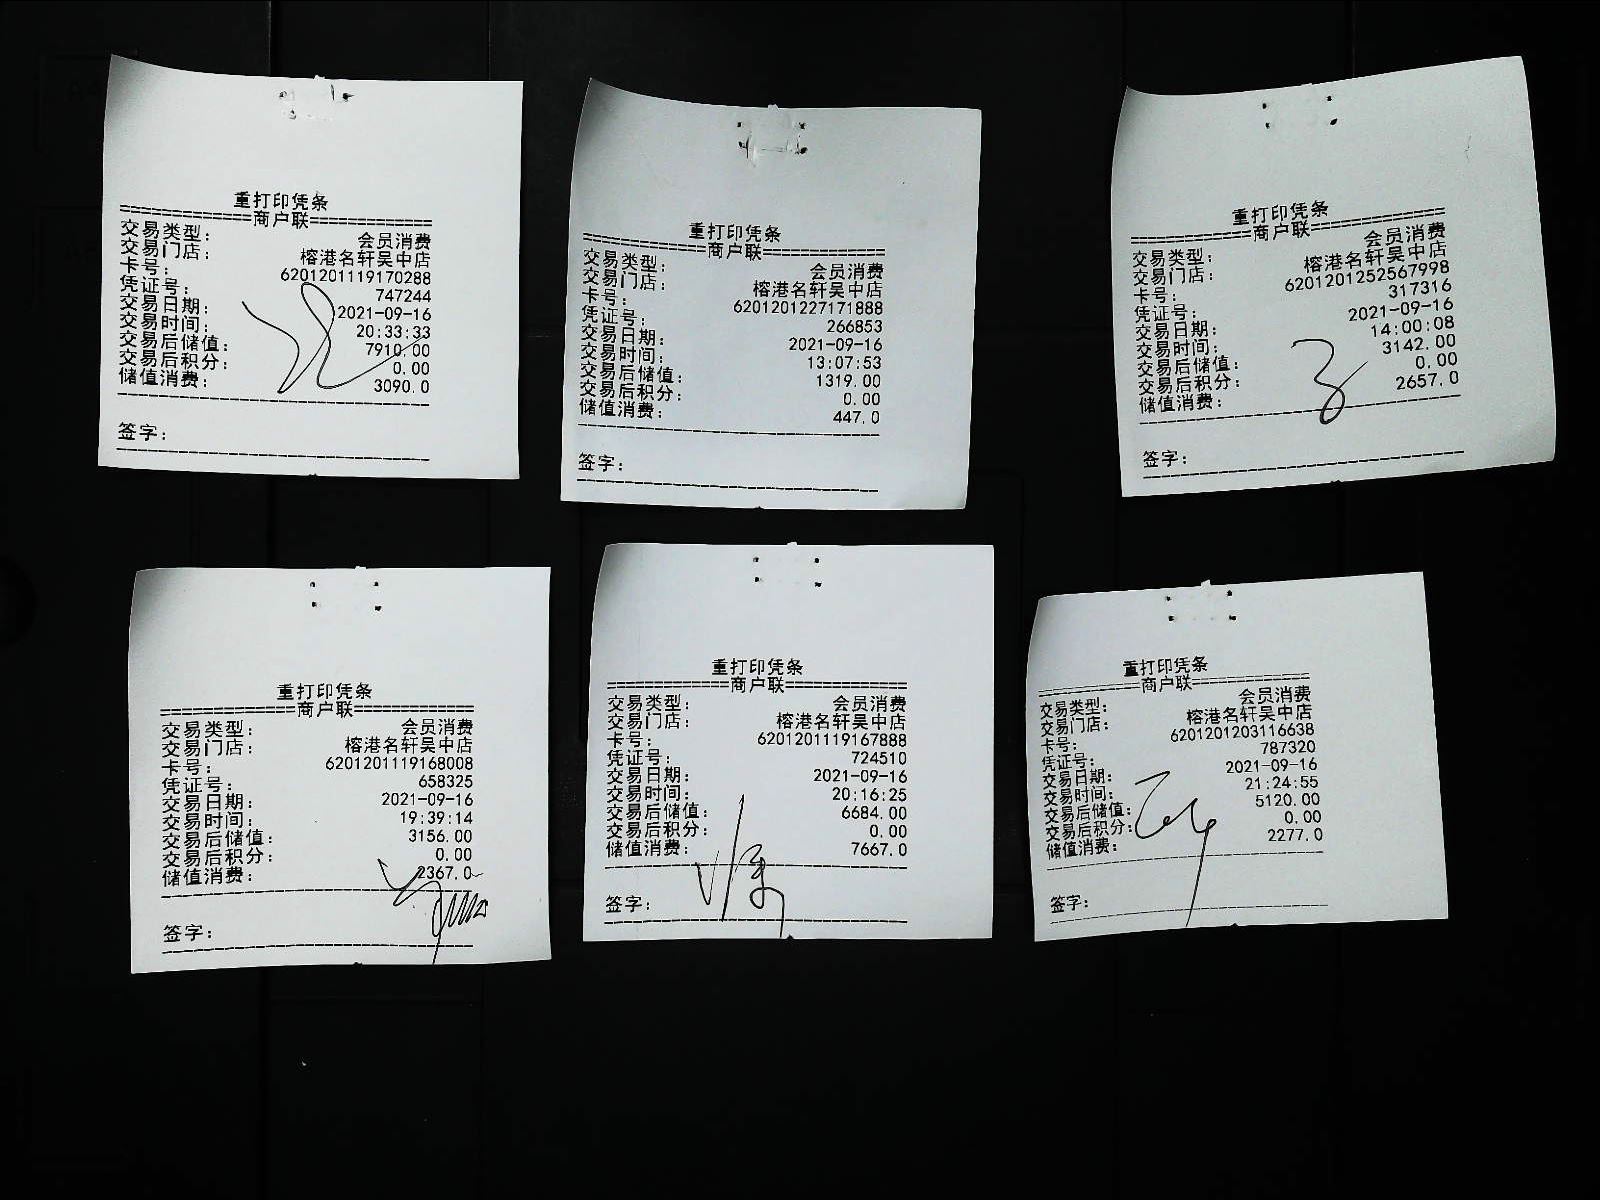 重打印凭条
=============商户联=============
交易类型： 会员消费
交易门店： 榕港名轩吴中店
卡号： 6201201119170288
凭证号： 747244
交易日期： 2021-09-16
交易时间： 20:33:33
交易后储值： 7910.00
交易后积分： 0.00
储值消费： 3090.0
签字：
重打印凭条
=============商户联=============
交易类型： 会员消费
交易门店： 榕港名轩吴中店
卡号： 6201201227171888
凭证号： 266853
交易日期： 2021-09-16
交易时间： 13:07:53
交易后储值： 1319.00
交易后积分： 0.00
储值消费： 447.0
签字：
重打印凭条
=============商户联=============
交易类型： 会员消费
交易门店： 榕港名轩吴中店
卡号： 6201201252567998
凭证号： 317316
交易日期： 2021-09-16
交易时间： 14:00:08
交易后储值： 3142.00
交易后积分： 0.00
储值消费： 2657.0
签字：
重打印凭条
=============商户联=============
交易类型： 会员消费
交易门店： 榕港名轩吴中店
卡号： 6201201119168008
凭证号： 658325
交易日期： 2021-09-16
交易时间： 19:39:14
交易后储值： 3156.00
交易后积分： 0.00
储值消费： 2367.0
签字：
重打印凭条
=============商户联=============
交易类型： 会员消费
交易门店： 榕港名轩吴中店
卡号： 6201201119167888
凭证号： 724510
交易日期： 2021-09-16
交易时间： 20:16:25
交易后储值： 6684.00
交易后积分： 0.00
储值消费： 7667.0
签字：
重打印凭条
=============商户联=============
交易类型： 会员消费
交易门店： 榕港名轩吴中店
卡号： 6201201203116638
凭证号： 787320
交易日期： 2021-09-16
交易时间： 21:24:55
交易后储值： 5120.00
交易后积分： 0.00
储值消费： 2277.0
签字：